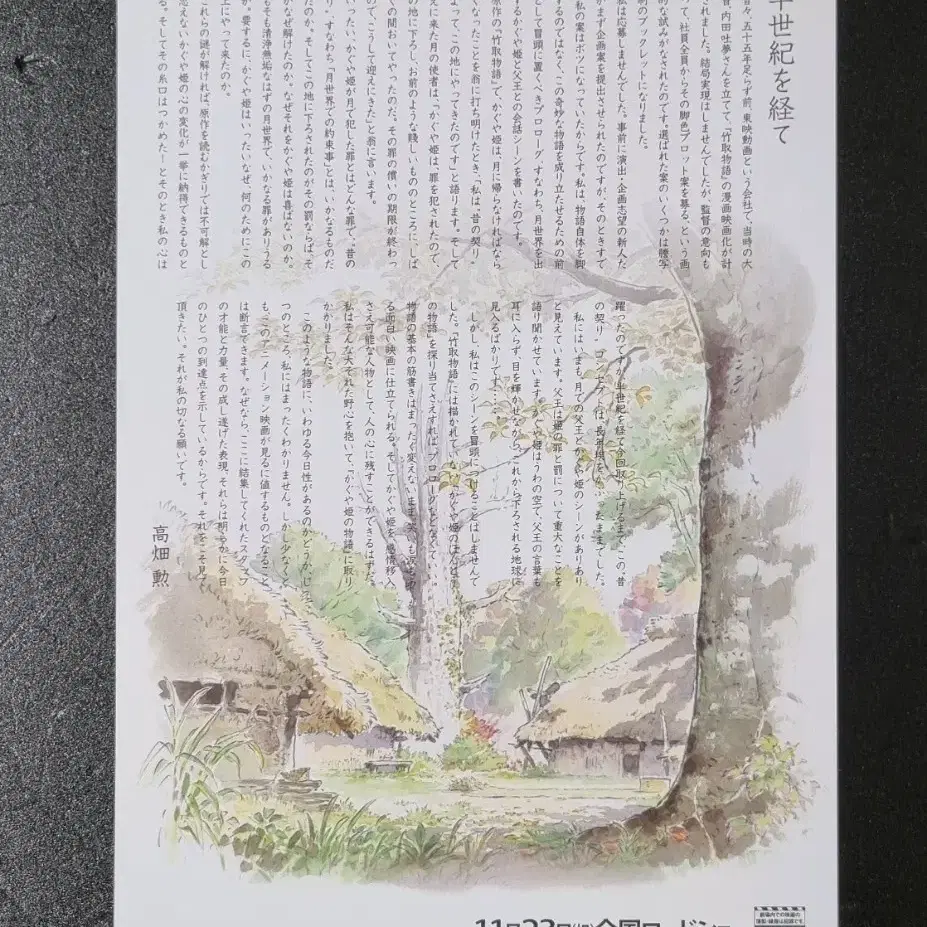 半世紀を経て
々、五十五年足らず前、東映動画という会社で、当時の大
者、内田吐夢さんを立てて、『竹取物語』の漫画映画化が計
されました。結局実現はしませんでしたが、監督の意向も
って、社員全員からその脚色プロット案を募る、という画
的な試みがなされたのです。選ばれた案のいくつかは謄写
刷のブックレットになりました。
私は応募しませんでした。事前に演出・企画志望の新人た
がまず企画案を提出させられたのですが、そのときすで
私の案はボツになっていたからです。私は、物語自体を脚
するのではなく、この奇妙な物語を成り立たせるための前
として冒頭に置くべきプロローグ、すなわち、月世界を出
するかぐや姫と父王との会話シーンを書いたのです。
原作の『竹取物語』で、かぐや姫は、月に帰らなければなら
くなったことを翁に打ち明けたとき、「私は、“昔の契り”
よって、この地にやってきたのです」と語ります。そして
えに来た月の使者は、「かぐや姫は罪を犯されたので、
の地に下ろし、お前のような賤しいもののところに、しば
くの間おいてやったのだ。その罪の償いの期限が終わっ
ので、こうして迎えにきた」と翁に言います。
いったい、かぐや姫が月で犯した罪とはどんな罪で、“昔の
り”、すなわち「月世界での約束事」とは、いかなるものだ
たのか。そしてこの地に下ろされたのがその罰ならば、そ
がなぜ解けたのか。なぜそれをかぐや姫は喜ばないのか。
もそも清浄無垢なはずの月世界で、いかなる罪がありうる
か。要するに、かぐや姫はいったいなぜ、何のためにこの
上にやって来たのか。
これらの謎が解ければ、原作を読むかぎりでは不可解とし
思えないかぐや姫の心の変化が一挙に納得できるものと
る。そしてその糸口はつかめた!とそのとき私の心は
躍ったのですが、半世紀を経て今回取り上げるまで、この“昔
の契り”コンテは、長年埃をかぶったままでした。
私にはいまも、月での父王とかぐや姫のシーンがありあり
と見えています。父王は姫の罪と罰について重大なことを
語り聞かせています。かぐや姫はうわの空で、父王の言葉も
耳に入らず、目を輝かせながら、これから下ろされる地球に
見入るばかりです……。
しかし、私はこのシーンを冒頭につけることはしませんで
した。『竹取物語』には描かれていない「かぐや姫のほんとう
の物語」を探り当てさえすれば、プロローグなどなくていい。
物語の基本の筋書きはまったく変えないまま、笑いも涙もあ
る面白い映画に仕立てられる。そしてかぐや姫を、感情移入
さえ可能な人物として、人の心に残すことができるはずだ。
私はそんな大それた野心を抱いて、『かぐや姫の物語』に取り
かかりました。
このような物語に、いわゆる今日性があるのかどうか、じ
つのところ、私にはまったくわかりません。しかし少なくと
も、このアニメーション映画が見るに値するものとなること
は断言できます。なぜなら、ここに結集してくれたスタッフ
の才能と力量、その成し遂げた表現、それらは明らかに今日
のひとつの到達点を示しているからです。それをこそ見て
頂きたい。それが私の切なる願いです。
高畑 勲
11月23日(祝)全国ロードショー